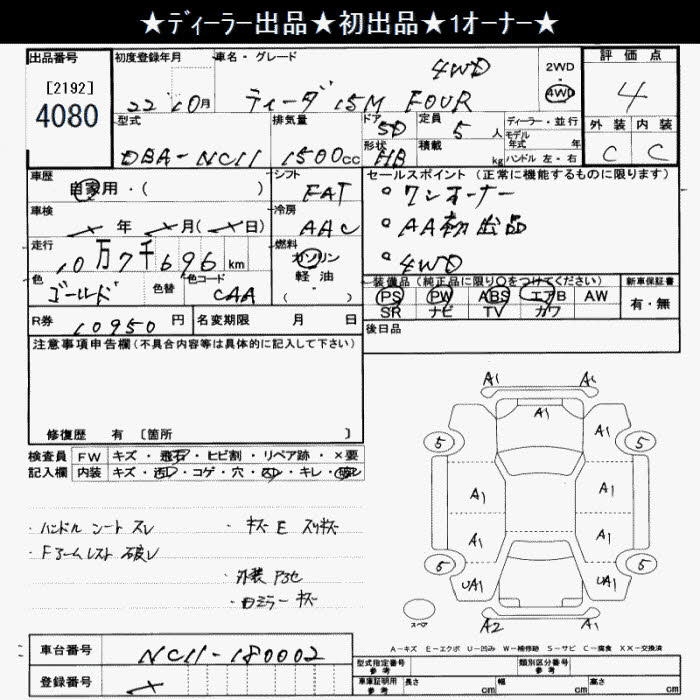 ★ディーラー出品★初出品★1オーナー★
出品番号 初度登録年月 車名・グレード 2WD 評価点
[2192] 4WD ・
4080 22 10月 ティーダ 15M FOUR 4WD 4
型式 排気量 ドア 5D 定員 5人 ディーラー・並行 外装 内装
DBA-NC11 1500cc 形状 HB 積載 kg モデル年式 年 C C
ハンドル 左・右
車歴 シフト セールスポイント (正常に機能するものに限ります)
自家用・( ) FAT ◦ワンオーナー
車検 冷房 ◦AA初出品
年 月( 日) AAC ◦4WD
走行 燃料
10万7千696km ガソリン
色 色替 色コード 軽油 装備品(純正品に限り○をつけてください) 新車保証書
ゴールド CAA ・( ) PS PW ABS エアB AW 有・無
R券 10950円 名変期限 月 日 SR ナビ TV カワ
後日品
注意事項申告欄(不具合内容等は具体的に記入して下さい)
修復歴 有 [箇所 ]
検査員 FW キズ・飛石・ヒビ割・リペア跡・×要
記入欄 内装 キズ・汚レ・コゲ・穴・スレ・キレ・破レ
・ハンドル シート スレ ・キズ E スリキズ
・Fアームレスト 破レ
・外装 アセ
・ロミラー キズ
A1 A1
A1
5 5
A1 A1
A1 A1
5 5
UA1 UA1
スペア A2 A1
A-キズ E-エクボ U-凹み W-補修跡 S-サビ C-腐食 XX-交換済
車台番号 NC11-180002 型式指定番号 参考 類別区分番号 参考
登録番号 車庫証明用 参考 長さ cm 幅 cm 高さ cm